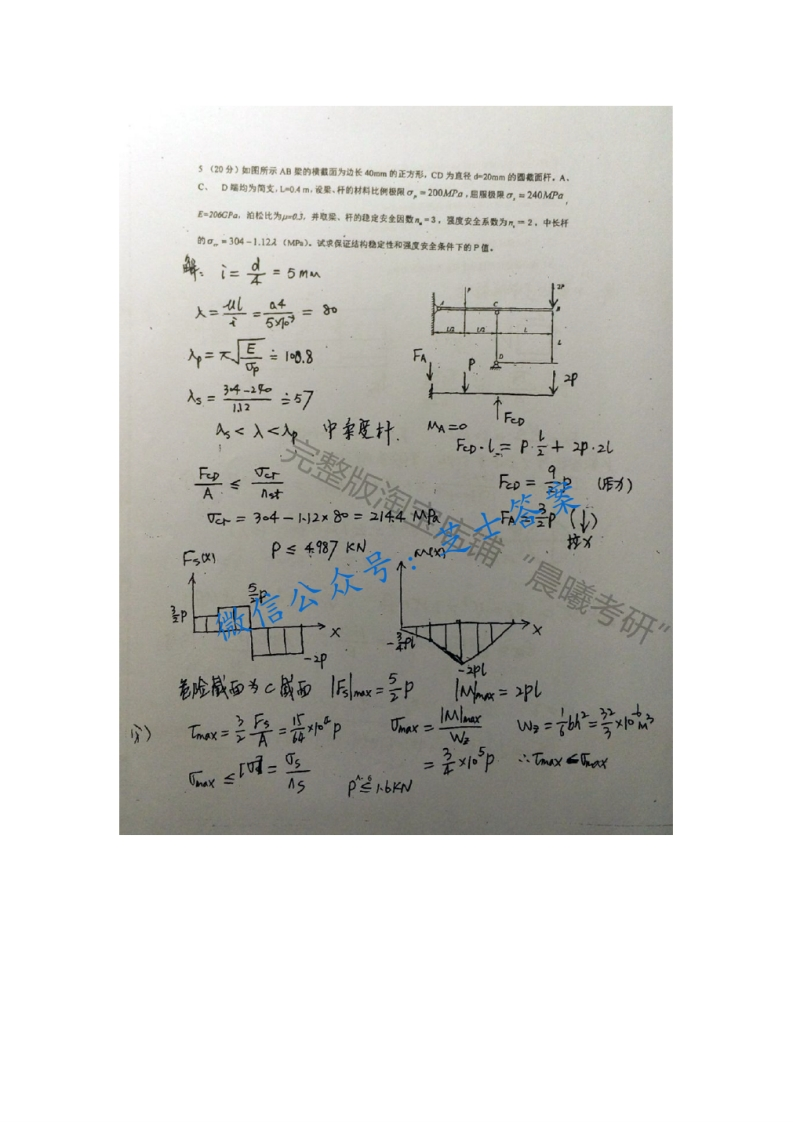 5 (20分) 如图所示 AB 梁的横截面为边长 40mm 的正方形，CD 为直径 d=20mm 的圆截面杆。A、
C、 D 端均为简支，L=0.4 m，设梁、杆的材料比例极限 σp = 200MPa，屈服极限 σs = 240MPa，
E=206GPa，泊松比为μ=0.3，并取梁、杆的稳定安全因数 nst =3，强度安全系数为 ns = 2，中长杆
的 σcr = 304 − 1.12λ (MPa)。试求保证结构稳定性和强度安全条件下的 P 值。
解: i = d/4 = 5 mm
λ = μl/i = 0.4/5×10^-3 = 80
λp = π√(E/σp) ≐ 100.8
λs = (304-240)/1.12 ≐ 57
λs < λ < λp 中柔度杆.
FCD/A ≤ σcr/nst
σcr = 304 - 1.12×80 = 214.4 MPa
P ≤ 4.987 KN
A
P
C
2P
B
L/2
L/2
L
L
D
FA
P
2P
FCD
MA=0
FCD·l = P·l/2 + 2P·2l
FCD = 9/2 P (压力)
FA = 3/2 P (↓)
Fs(x)
3/2 P
5/2 P
x
-2P
M(x)
-3/4 Pl
x
-2Pl
危险截面为C截面 |Fs|max = 5/2 P |M|max = 2Pl
τmax = 3/2 Fs/A = 15/64 ×10^4 P σmax = |M|max/Wz Wz = 1/6 bh² = 32/3 ×10^-6 m³
= 3/4 ×10^5 P ∴ τmax ≤ σmax
σmax ≤ [σ] = σs/ns P ≤ 1.6KN
完整版淘宝店铺“晨曦考研”
微信公众号：芝士答案